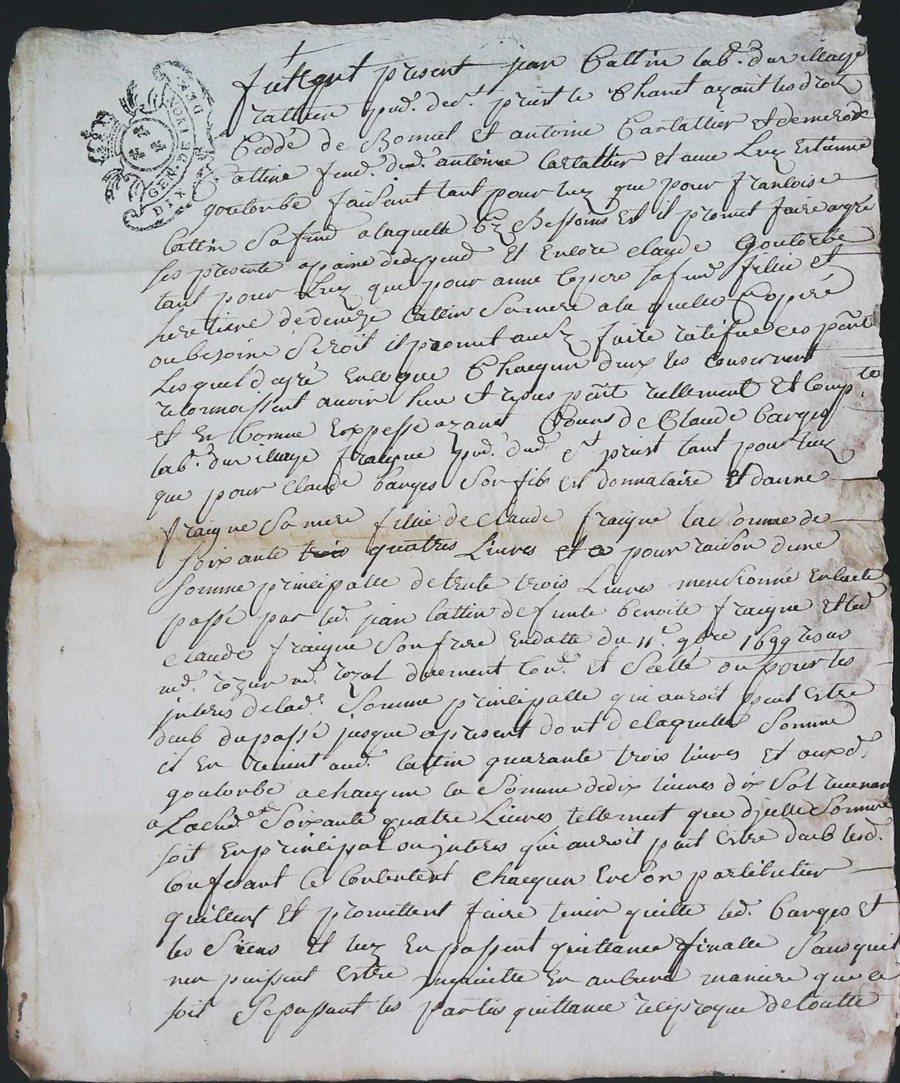 GEN. DE RION
DIX DER
fut present jean Cattin lab.r du village
Cattier par.se de s.t priest le Chanet ayant les droits
Ceddé de Bonnet et antoine Cartallier et demerode
Cattine fem.e dud. antoine Cartallier et ame Luy Estienne
goutorbe faisant tant pour luy que pour françoise
Cattin sa fem.e a laquelle Bessoins est il promet faire agré
les presente a paine dedepend et Encore claude Goutorbe
tant pour luy que pour anne Copere sa fem.e fillie et
heretiere dedenize Cattin sa mere a la quelle Copere
ou besoins seroit il promet aussy faire ratifier ces p.nte
Lesquel degré Ence que Chaqun deux les consernent
reconnoissent avoir heu et receu p.nt reellement et comp.te
et En bonne Expesse ayant Cours de Claude Barges
lab.r du village fraigne par.se dud. s.t priest tant pour luy
que pour claude barges son fils et donnataire et danne
fraigne sa mere fillie de claude fraigne la somme de
soixante trois quatres Livres et ce pour raison dune
somme principalle de trente trois Livres mensionné En lacte
passé par led. jean Cattin defunte benoite fraigne et led.
claude fraigne son frere En datte du 11.e 9bre 1699 resus
m.e rozal duement con.é et scellé ou pour les
interes de lad. somme principalle qui auroit peut estre
deub du passé jusque a present dont de laquelle somme
il En revient aud. Cattin quarante trois livres et aux d.
goutorbe a chaqun la somme de dix livres dix sol revenant
a Lad. soixante quatre Livres tellement que dicelle somme
soit En principal ou interes qui auroit peut estre deub lesd.
Confessant ce Contentent chaqun En son partitulier
quittent et promettent faire tenir quitte led. barges et
les siens et luy En passent quittance finalle sans quil
nen puissent estre inquiette En aubune maniere que ce
soit se passant les parties quittance reciproque de toutte